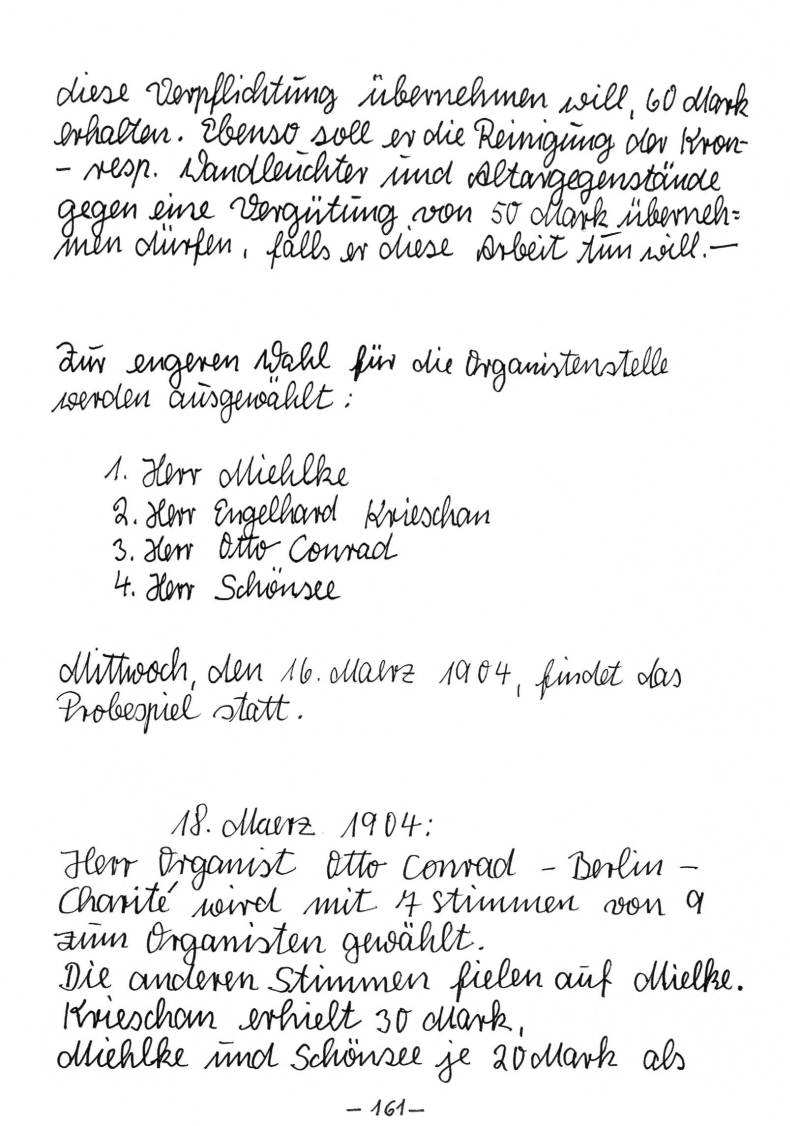 diese Verpflichtung übernehmen will, 60 Mark
erhalten. Ebenso soll er die Reinigung der Kron-
- resp. Wandleuchter und Altargegenstände
gegen eine Vergütung von 50 Mark überneh=
men dürfen, falls er diese Arbeit tun will.—
Zur engeren Wahl für die Organistenstelle
werden ausgewählt:
1. Herr Miehlke
2. Herr Engelhard Krieschan
3. Herr Otto Conrad
4. Herr Schönsee
Mittwoch, den 16. Maerz 1904, findet das
Probespiel statt.
18. Maerz 1904:
Herr Organist Otto Conrad - Berlin -
Charité wird mit 7 Stimmen von 9
zum Organisten gewählt.
Die anderen Stimmen fielen auf Mielke.
Krieschan erhielt 30 Mark,
Miehlke und Schönsee je 20 Mark als
- 161 -